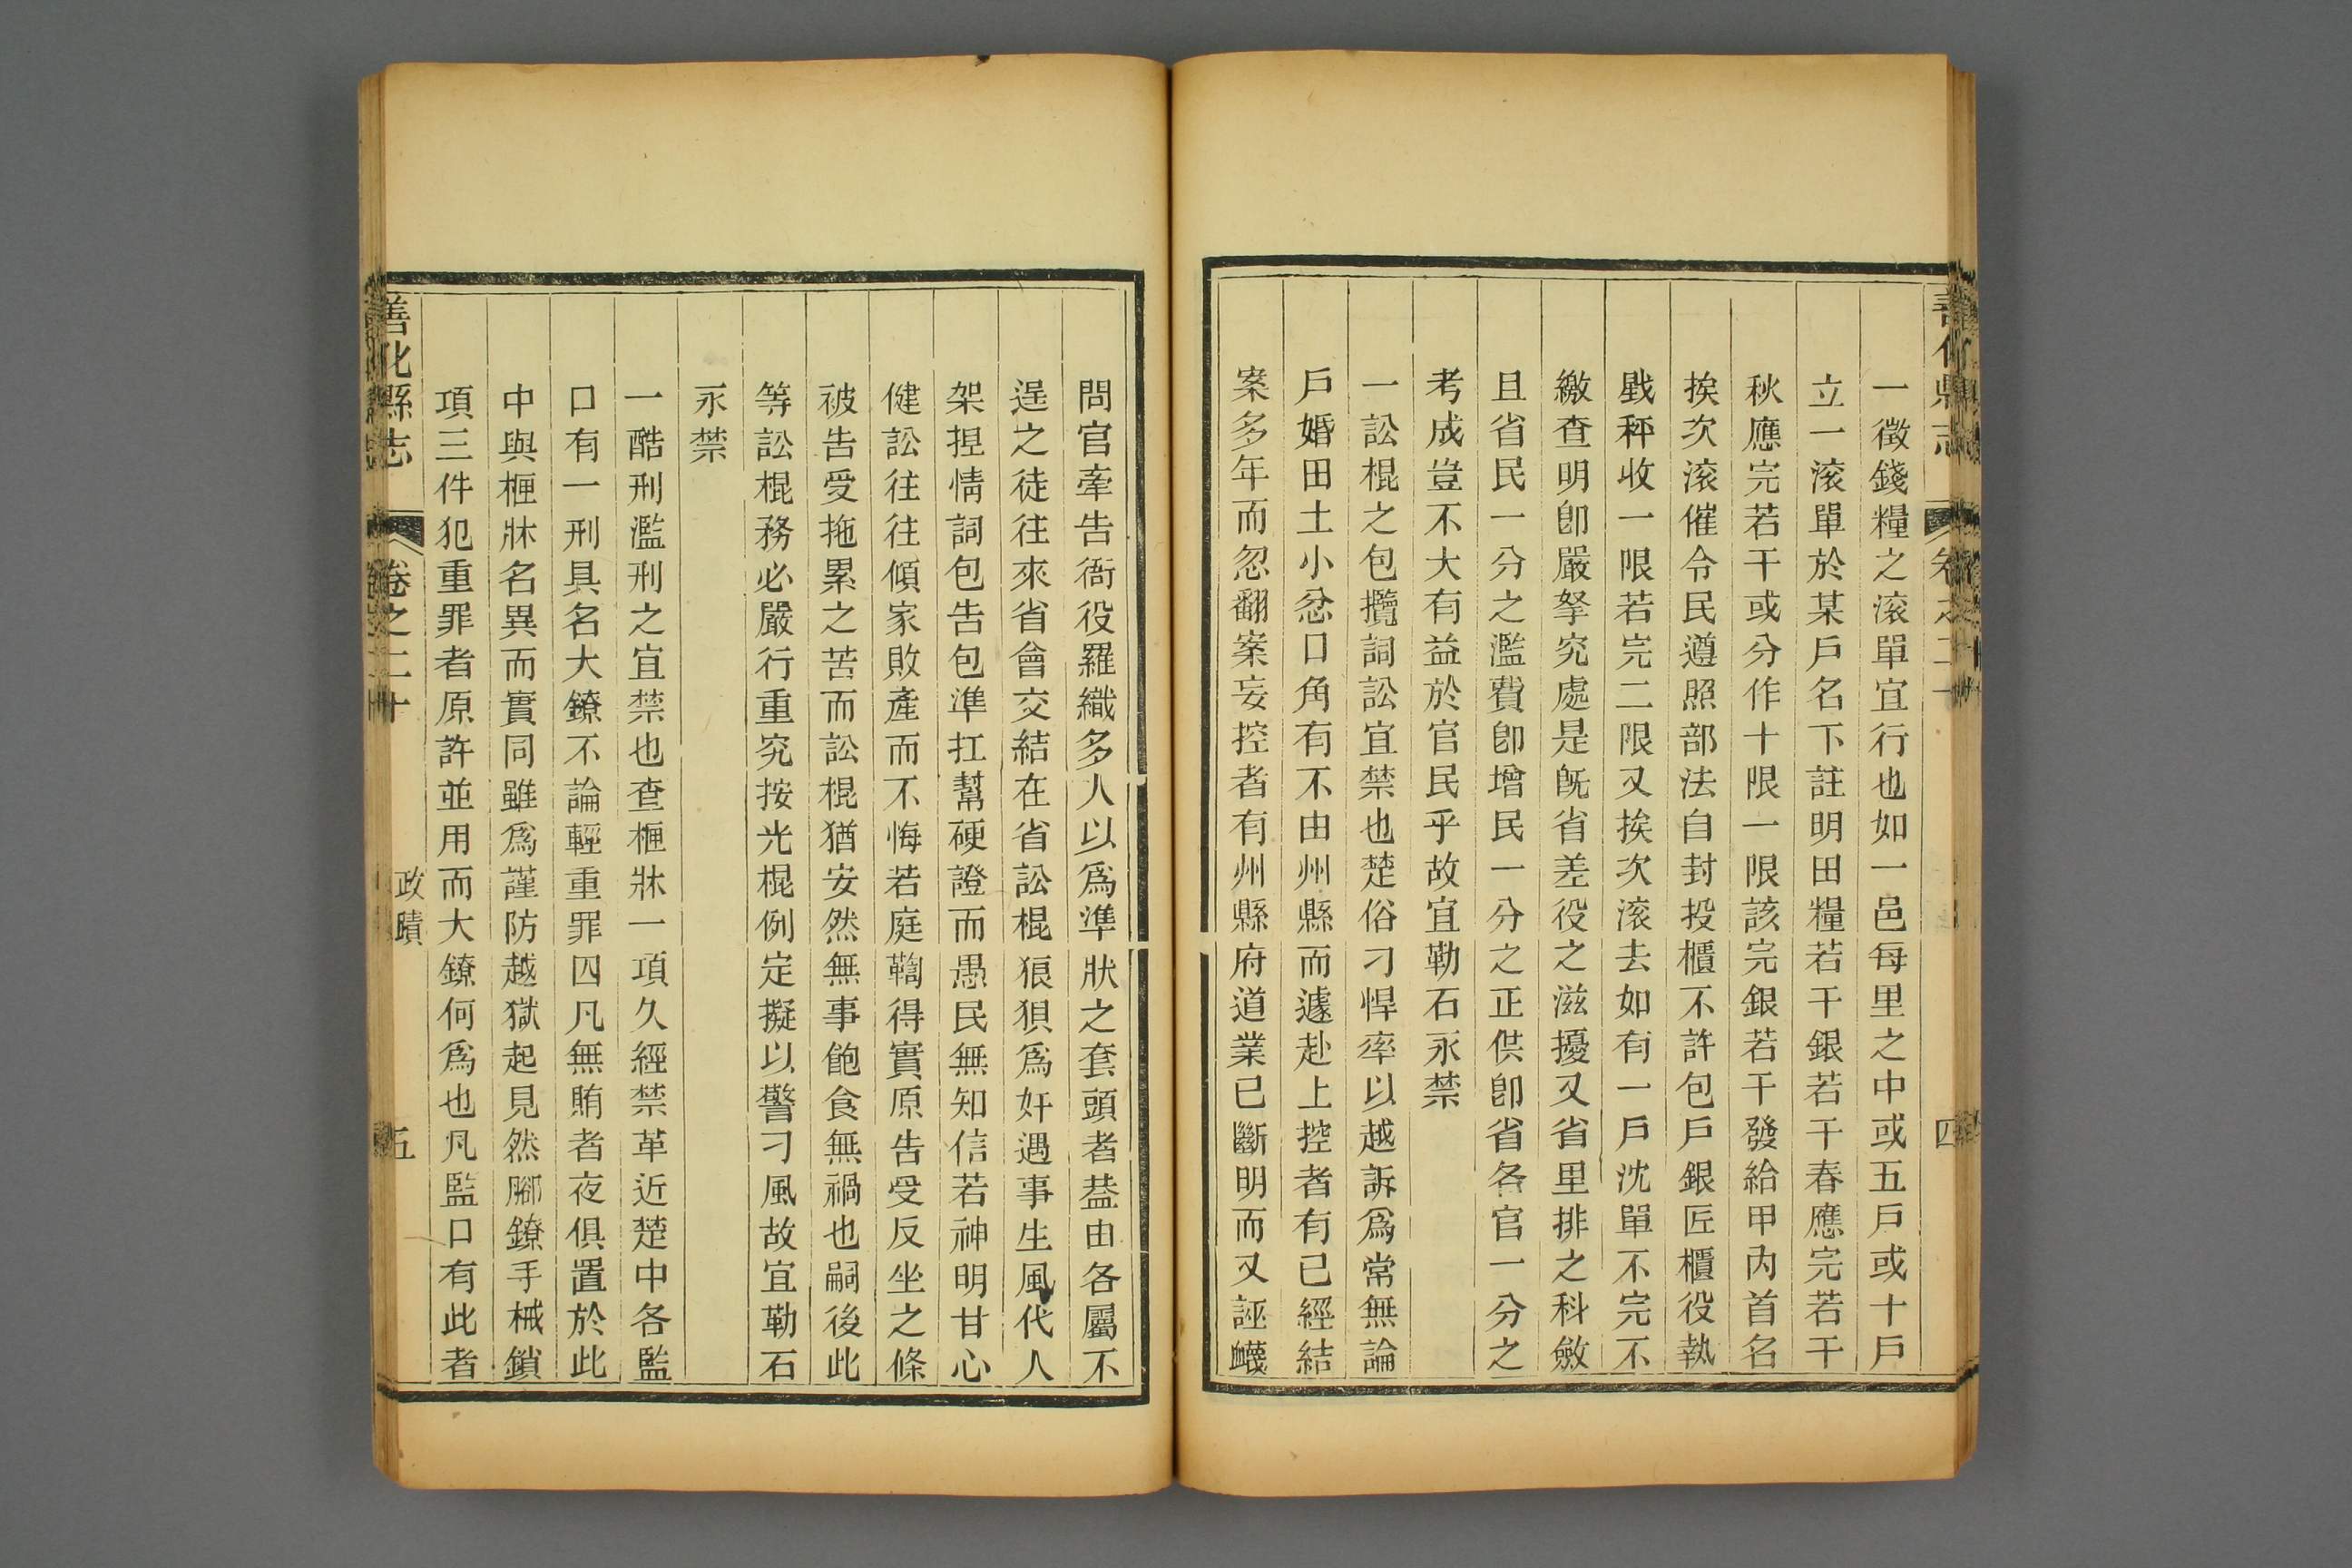 善化縣志
卷之二十
四
一徵錢糧之滚單宜行也如一邑每里之中或五戸或十戸
立一滚單於某戸名下註明田糧若干銀若干春應完若干
秋應完若干或分作十限一限該完銀若干發給甲內首名
挨次滚催令民遵照部法自封投櫃不許包戸銀匠櫃役執
戥秤收一限若完二限又挨次滚去如有一戸沈單不完不
繳查明卽嚴拏究處是旣省差役之滋擾又省里排之科斂
且省民一分之濫費卽增民一分之正供卽省各官一分之
考成豈不大有益於官民乎故宜勒石永禁
一訟棍之包攬詞訟宜禁也楚俗刁悍率以越訴爲常無論
戸婚田土小忿口角有不由州縣而遽赴上控者有已經結
案多年而忽翻案妄控者有州縣府道業已斷明而又誣衊
問官牽告衙役羅織多人以爲準狀之套頭者葢由各屬不
逞之徒往來省會交結在省訟棍狼狽爲奸遇事生風代人
架捏情詞包告包準扛幫硬證而愚民無知信若神明甘心
健訟往往傾家敗產而不悔若庭鞫得實原告受反坐之條
被告受拖累之苦而訟棍猶安然無事飽食無禍也嗣後此
等訟棍務必嚴行重究按光棍例定擬以警刁風故宜勒石
永禁
一酷刑濫刑之宜禁也查柙牀一項久經禁革近楚中各監
口有一刑具名大鐐不論輕重罪四凡無賄者夜俱置於此
中與柙牀名異而實同雖爲謹防越獄起見然腳鐐手械鎖
項三件犯重罪者原許並用而大鐐何爲也凡監口有此者
善化縣志
卷之二十
政蹟
五